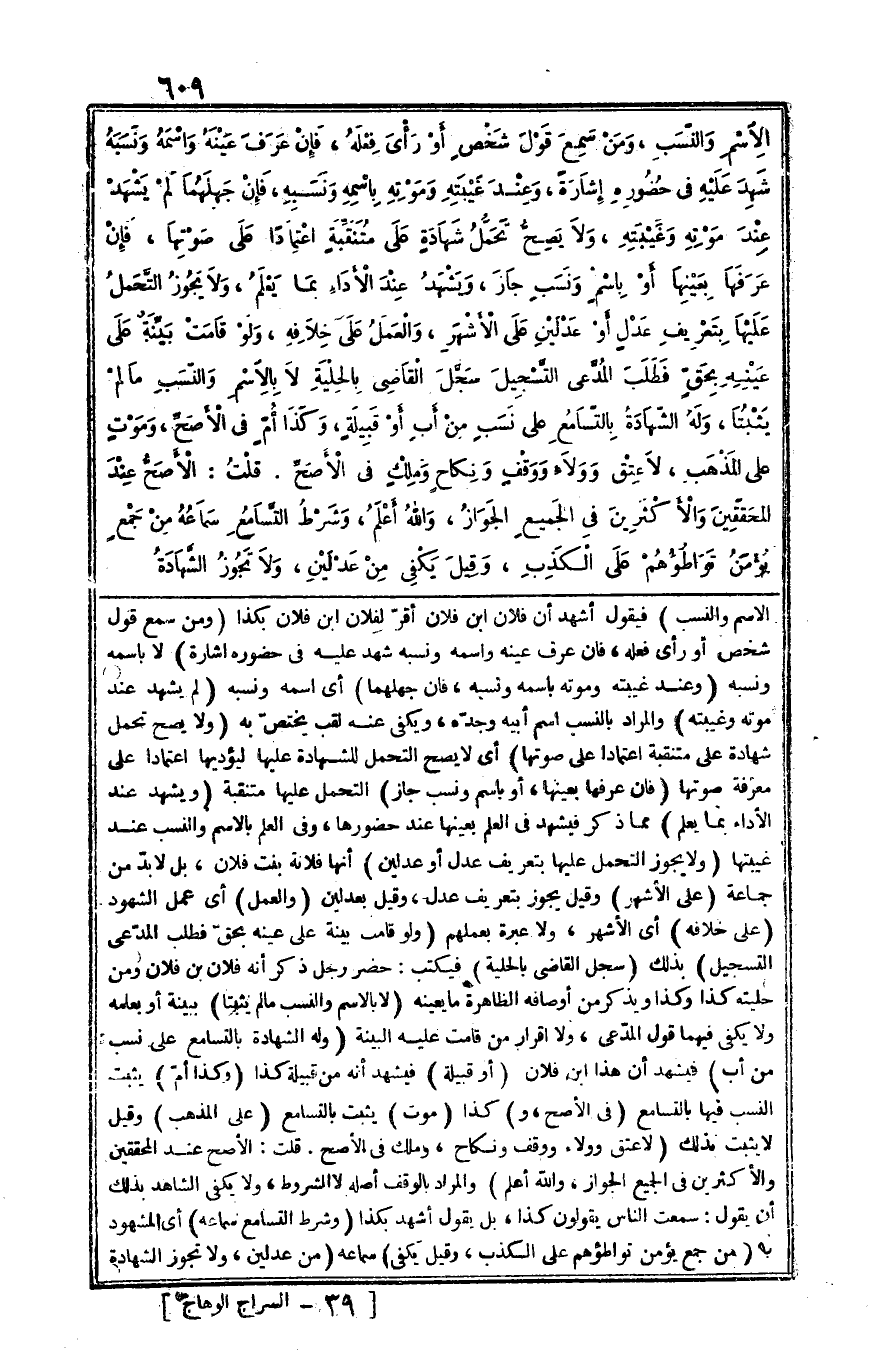 ٦٠٩
الِاسْمِ وَالنَّسَبِ ، وَمَنْ سَمِعَ قَوْلَ شَخْصٍ أَوْ رَأَى فِعْلَهُ ، فَإِنْ عَرَفَ عَيْنَهُ وَاسْمَهُ وَنَسَبَهُ
شَهِدَ عَلَيْهِ فِى حُضُورِهِ إِشَارَةً ، وَعِنْدَ غَيْبَتِهِ وَمَوْتِهِ بِاسْمِهِ وَنَسَبِهِ ، فَإِنْ جَهِلَهُمَا لَمْ يَشْهَدْ
عِنْدَ مَوْتِهِ وَغَيْبَتِهِ ، وَلاَ يَصِحُّ تَحَمُّلُ شَهَادَةٍ عَلَى مُتَنَقِّبَةٍ اعْتِمَادًا عَلَى صَوْتِهَا ، فَإِنْ
عَرَفَهَا بِعَيْنِهَا أَوْ بِاسْمٍ وَنَسَبٍ جَازَ ، وَيَشْهَدُ عِنْدَ الْأَدَاءِ بِمَا يَعْلَمُ ، وَلاَ يَجُوزُ التَّحَمُّلُ
عَلَيْهَا بِتَعْرِيفِ عَدْلٍ أَوْ عَدْلَيْنِ عَلَى الْأَشْهَرِ ، وَالْعَمَلُ عَلَى خِلَافِهِ ، وَلَوْ قَامَتْ بَيِّنَةٌ عَلَى
عَيْنِهِ بِحَقٍّ فَطَلَبَ الْمُدَّعِى التَّسْجِيلَ سَجَّلَ الْقَاضِى بِالْحِلْيَةِ لاَ بِالِاسْمِ وَالنَّسَبِ مَالَمْ
يَثْبُتَا ، وَلَهُ الشَّهَادَةُ بِالتَّسَامُعِ عَلَى نَسَبٍ مِنْ أَبٍ أَوْ قَبِيلَةٍ ، وَكَذَا أُمٌّ فِى الْأَصَحِّ ، وَمَوْتٍ
عَلَى الْمَذْهَبِ ، لاَ عِتْقٍ وَوَلاَءٍ وَوَقْفٍ وَنِكَاحٍ وَمِلْكٍ فِى الْأَصَحِّ . قُلْتُ : الْأَصَحُّ عِنْدَ
الْمُحَقِّقِينَ وَالْأَكْثَرِينَ فِى الْجَمِيعِ الْجَوَازُ ، وَاللّٰهُ أَعْلَمُ ، وَشَرْطُ التَّسَامُعِ سَمَاعُهُ مِنْ جَمْعٍ
يُؤْمَنُ تَوَاطُؤُهُمْ عَلَى الْكَذِبِ ، وَقِيلَ يَكْفِى مِنْ عَدْلَيْنِ ، وَلاَ تَجُوزُ الشَّهَادَةُ
الاسم والنسب ) فيقول أشهد أن فلان ابن فلان أقرّ لفلان ابن فلان بكذا ( ومن سمع قول
شخص أو رأى فعله ، فان عرف عينه واسمه ونسبه شهد عليه فى حضوره اشارة ) لا باسمه
ونسبه ( وعند غيبته وموته باسمه ونسبه ، فان جهلهما ) أى اسمه ونسبه ( لم يشهد عند
موته وغيبته ) والمراد بالنسب اسم أبيه وجدّه ، ويكفى عنه لقب يختصّ به ( ولا يصح تحمل
شهادة على متنقبة اعتمادا على صوتها ) أى لا يصح التحمل للشهادة عليها ليؤديها اعتمادا على
معرفة صوتها ( فان عرفها بعينها ، أو باسم ونسب جاز ) التحمل عليها متنقبة ( ويشهد عند
الأداء بما يعلم ) مما ذكر فيشهد فى العلم بعينها عند حضورها ، وفى العلم بالاسم والنسب عند
غيبتها ( ولا يجوز التحمل عليها بتعريف عدل أو عدلين ) أنها فلانة بنت فلان ، بل لابدّ من
جماعة ( على الأشهر ) وقيل يجوز بتعريف عدل ، وقيل بعدلين ( والعمل ) أى عمل الشهود
( على خلافه ) أى الأشهر ، ولا عبرة بعملهم ( ولو قامت بينة على عينه بحقّ فطلب المدّعى
التسجيل ) بذلك ( سجل القاضى بالحلية ) فيكتب : حضر رجل ذكر أنه فلان بن فلان ومن
حليته كذا وكذا ويذكر من أوصافه الظاهرة ما يعينه ( لا بالاسم والنسب مالم يثبتا ) ببينة أو بعلمه
ولا يكفى فيهما قول المدّعى ، ولا اقرار من قامت عليه البينة ( وله الشهادة بالتسامع على نسب
من أب ) فيشهد أن هذا ابن فلان ( أو قبيلة ) فيشهد أنه من قبيلة كذا ( وكذا أمّ ) يثبت
النسب فيها بالتسامع ( فى الأصح ، و ) كذا ( موت ) يثبت بالتسامع ( على المذهب ) وقيل
لا يثبت بذلك ( لاعتق وولاء ووقف ونكاح ، وملك فى الأصح . قلت : الأصح عند المحققين
والأكثرين فى الجميع الجواز ، والله أعلم ) والمراد بالوقف أصله لا الشروط ، ولا يكفى الشاهد بذلك
أن يقول : سمعت الناس يقولون كذا ، بل يقول أشهد بكذا ( وشرط التسامع سماعه ) أى المشهود
به ( من جمع يؤمن تواطؤهم على الكذب ، وقيل يكفى ) سماعه ( من عدلين ، ولا تجوز الشهادة
[ ٣٩ - السراج الوهاج ]